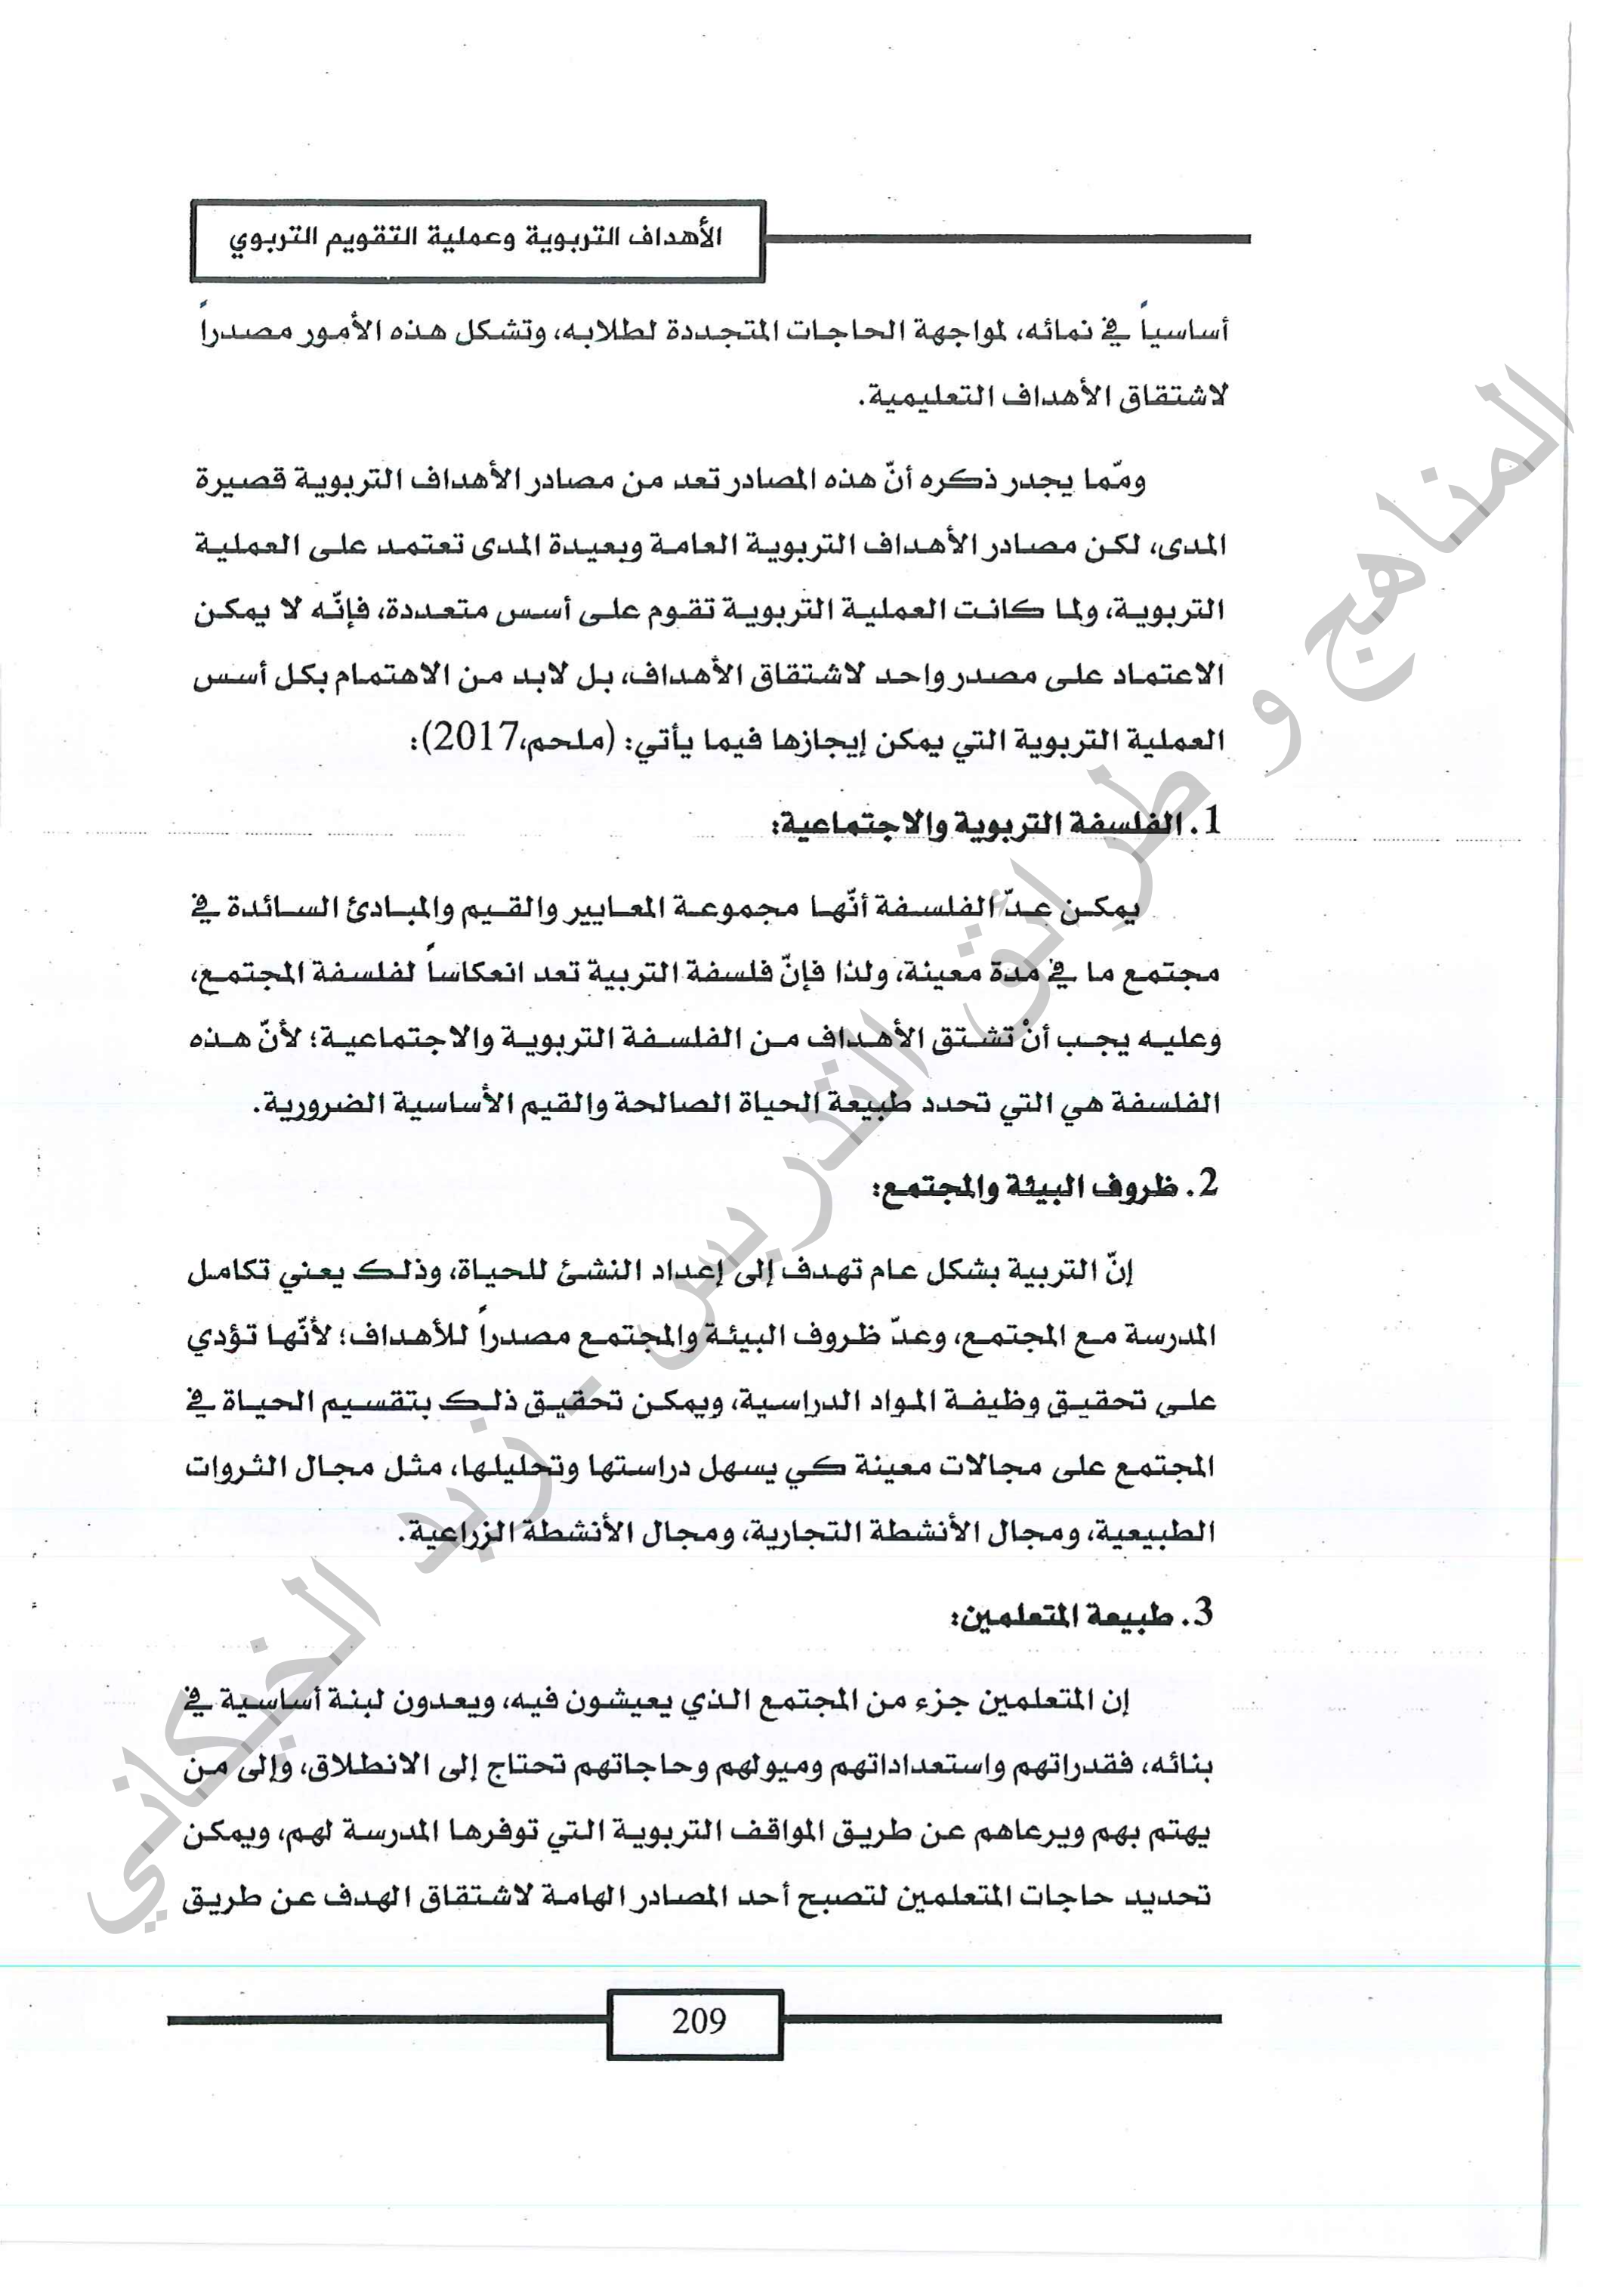 الأهداف التربوية وعملية التقويم التربوي
أساسياً في نمائه، لمواجهة الحاجات المتجددة لطلابه، وتشكل هذه الأمور مصدراً
لاشتقاق الأهداف التعليمية.
وممّا يجدر ذكره أنّ هذه المصادر تعد من مصادر الأهداف التربوية قصيرة
المدى، لكن مصادر الأهداف التربوية العامة وبعيدة المدى تعتمد على العملية
التربوية، ولما كانت العملية التربوية تقوم على أسس متعددة، فإنّه لا يمكن
الاعتماد على مصدر واحد لاشتقاق الأهداف، بل لابد من الاهتمام بكل أسس
العملية التربوية التي يمكن إيجازها فيما يأتي: (ملحم،2017):
1. الفلسفة التربوية والاجتماعية:
يمكن عدّ الفلسفة أنّها مجموعة المعايير والقيم والمبادئ السائدة في
مجتمع ما في مدة معينة، ولذا فإنّ فلسفة التربية تعد انعكاساً لفلسفة المجتمع،
وعليه يجب أنْ تشتق الأهداف من الفلسفة التربوية والاجتماعية؛ لأنّ هذه
الفلسفة هي التي تحدد طبيعة الحياة الصالحة والقيم الأساسية الضرورية.
2. ظروف البيئة والمجتمع:
إنّ التربية بشكل عام تهدف إلى إعداد النشئ للحياة، وذلك يعني تكامل
المدرسة مع المجتمع، وعدّ ظروف البيئة والمجتمع مصدراً للأهداف؛ لأنّها تؤدي
على تحقيق وظيفة المواد الدراسية، ويمكن تحقيق ذلك بتقسيم الحياة في
المجتمع على مجالات معينة كي يسهل دراستها وتحليلها، مثل مجال الثروات
الطبيعية، ومجال الأنشطة التجارية، ومجال الأنشطة الزراعية.
3. طبيعة المتعلمين:
إن المتعلمين جزء من المجتمع الذي يعيشون فيه، ويعدون لبنة أساسية في
بنائه، فقدراتهم واستعداداتهم وميولهم وحاجاتهم تحتاج إلى الانطلاق، وإلى من
يهتم بهم ويرعاهم عن طريق المواقف التربوية التي توفرها المدرسة لهم، ويمكن
تحديد حاجات المتعلمين لتصبح أحد المصادر الهامة لاشتقاق الهدف عن طريق
209
المناهج و طرائق التدريس - زيد الخيكاني